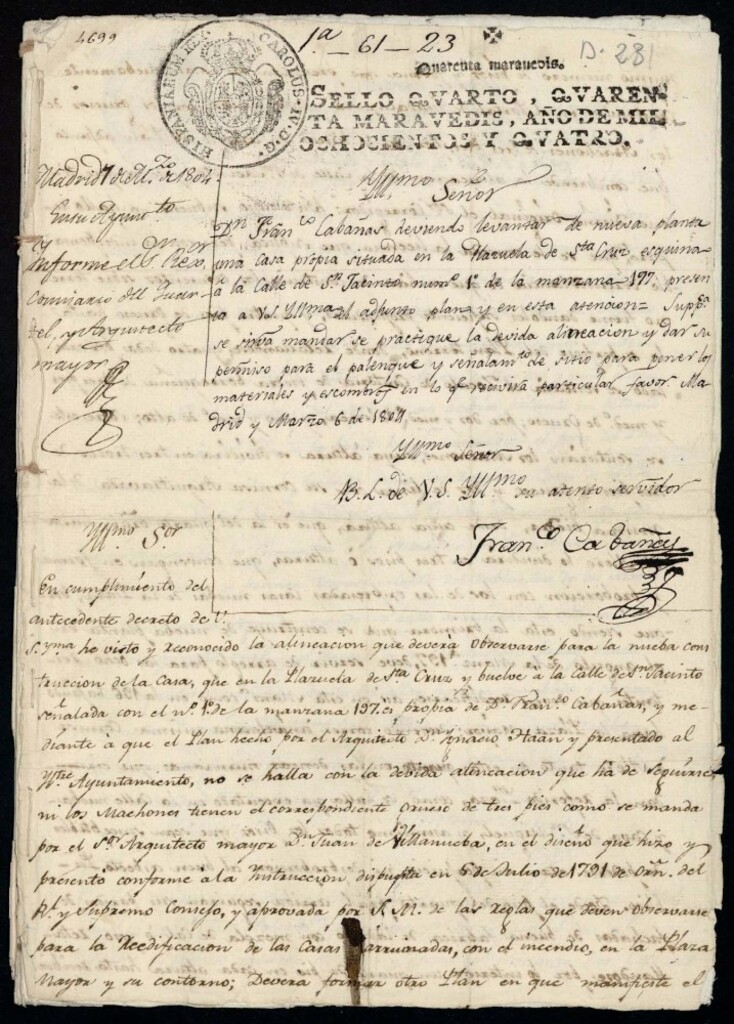 4699
1ª - 61 - 23
D. 231
HISPANIARUM REX. CAROLUS. IV. D. G.
Quarenta maravedis.
SELLO QVARTO, QVAREN-
TA MARAVEDIS, AÑO DE MIL
OCHOCIENTOS Y QVATRO.
Madrid 7 de Mzo. de 1804.
En su Ayunto
Informe el Sr. Rexor
Comisario del Quar-
tel, y Arquitecto
mayor
Yllmo Señor
Dn. Franco Cabañas deviendo levantar de nueva planta
una casa propia situada en la Plazuela de Sta Cruz esquina
a la Calle de Sn. Jacinto numo. 1º de la manzana 197. presen
ta a V.S. Yllma el adjunto plan, y en esta atencion = Suppca
se sirva mandar se practique la devida alineacion y dar su
permiso para el palenque y señalamto de sitio para poner los
materiales y escombros en lo q recivirá particular favor. Ma-
drid y Marzo 6 de 1804
Yllmo Señor
B. L. de V. S. Yllmo su atento servidor
Franco Cabañas
Yllmo Sor
En cumplimiento del
antecedente decreto de V.
S. Yma he visto y reconocido la alineacion que deverá observarse para la nueba cons
truccion de la Casa, que en la Plazuela de Sta Cruz y buelve à la calle de Sn Jacinto
señalada con el nº. 1º. de la manzana 197. es propia de Dn Franco Cabañas, y me-
diante à que el Plan hecho por el Arquitecto Dn Ignacio Haan y presentado al
Yltre Ayuntamiento, no se halla con la devida alineacion que ha de seguirse
ni los Machones tienen el correspondiente grueso de tres pies como se manda
por el Sr. Arquitecto mayor Dn Juan de Villanueba, en el diseño que hizo y
presentó conforme à la Ynstruccion dispuesta en 6 de Julio de 1791 de orn. del
Rl. y Supremo Consejo, y aprovada por S. M. de las reglas que deven observarse
para la Reedificacion de las Casas arruinadas, con el incendio, en la Plaza
Mayor y su contorno; Deverá formar otro Plan en que manifieste el